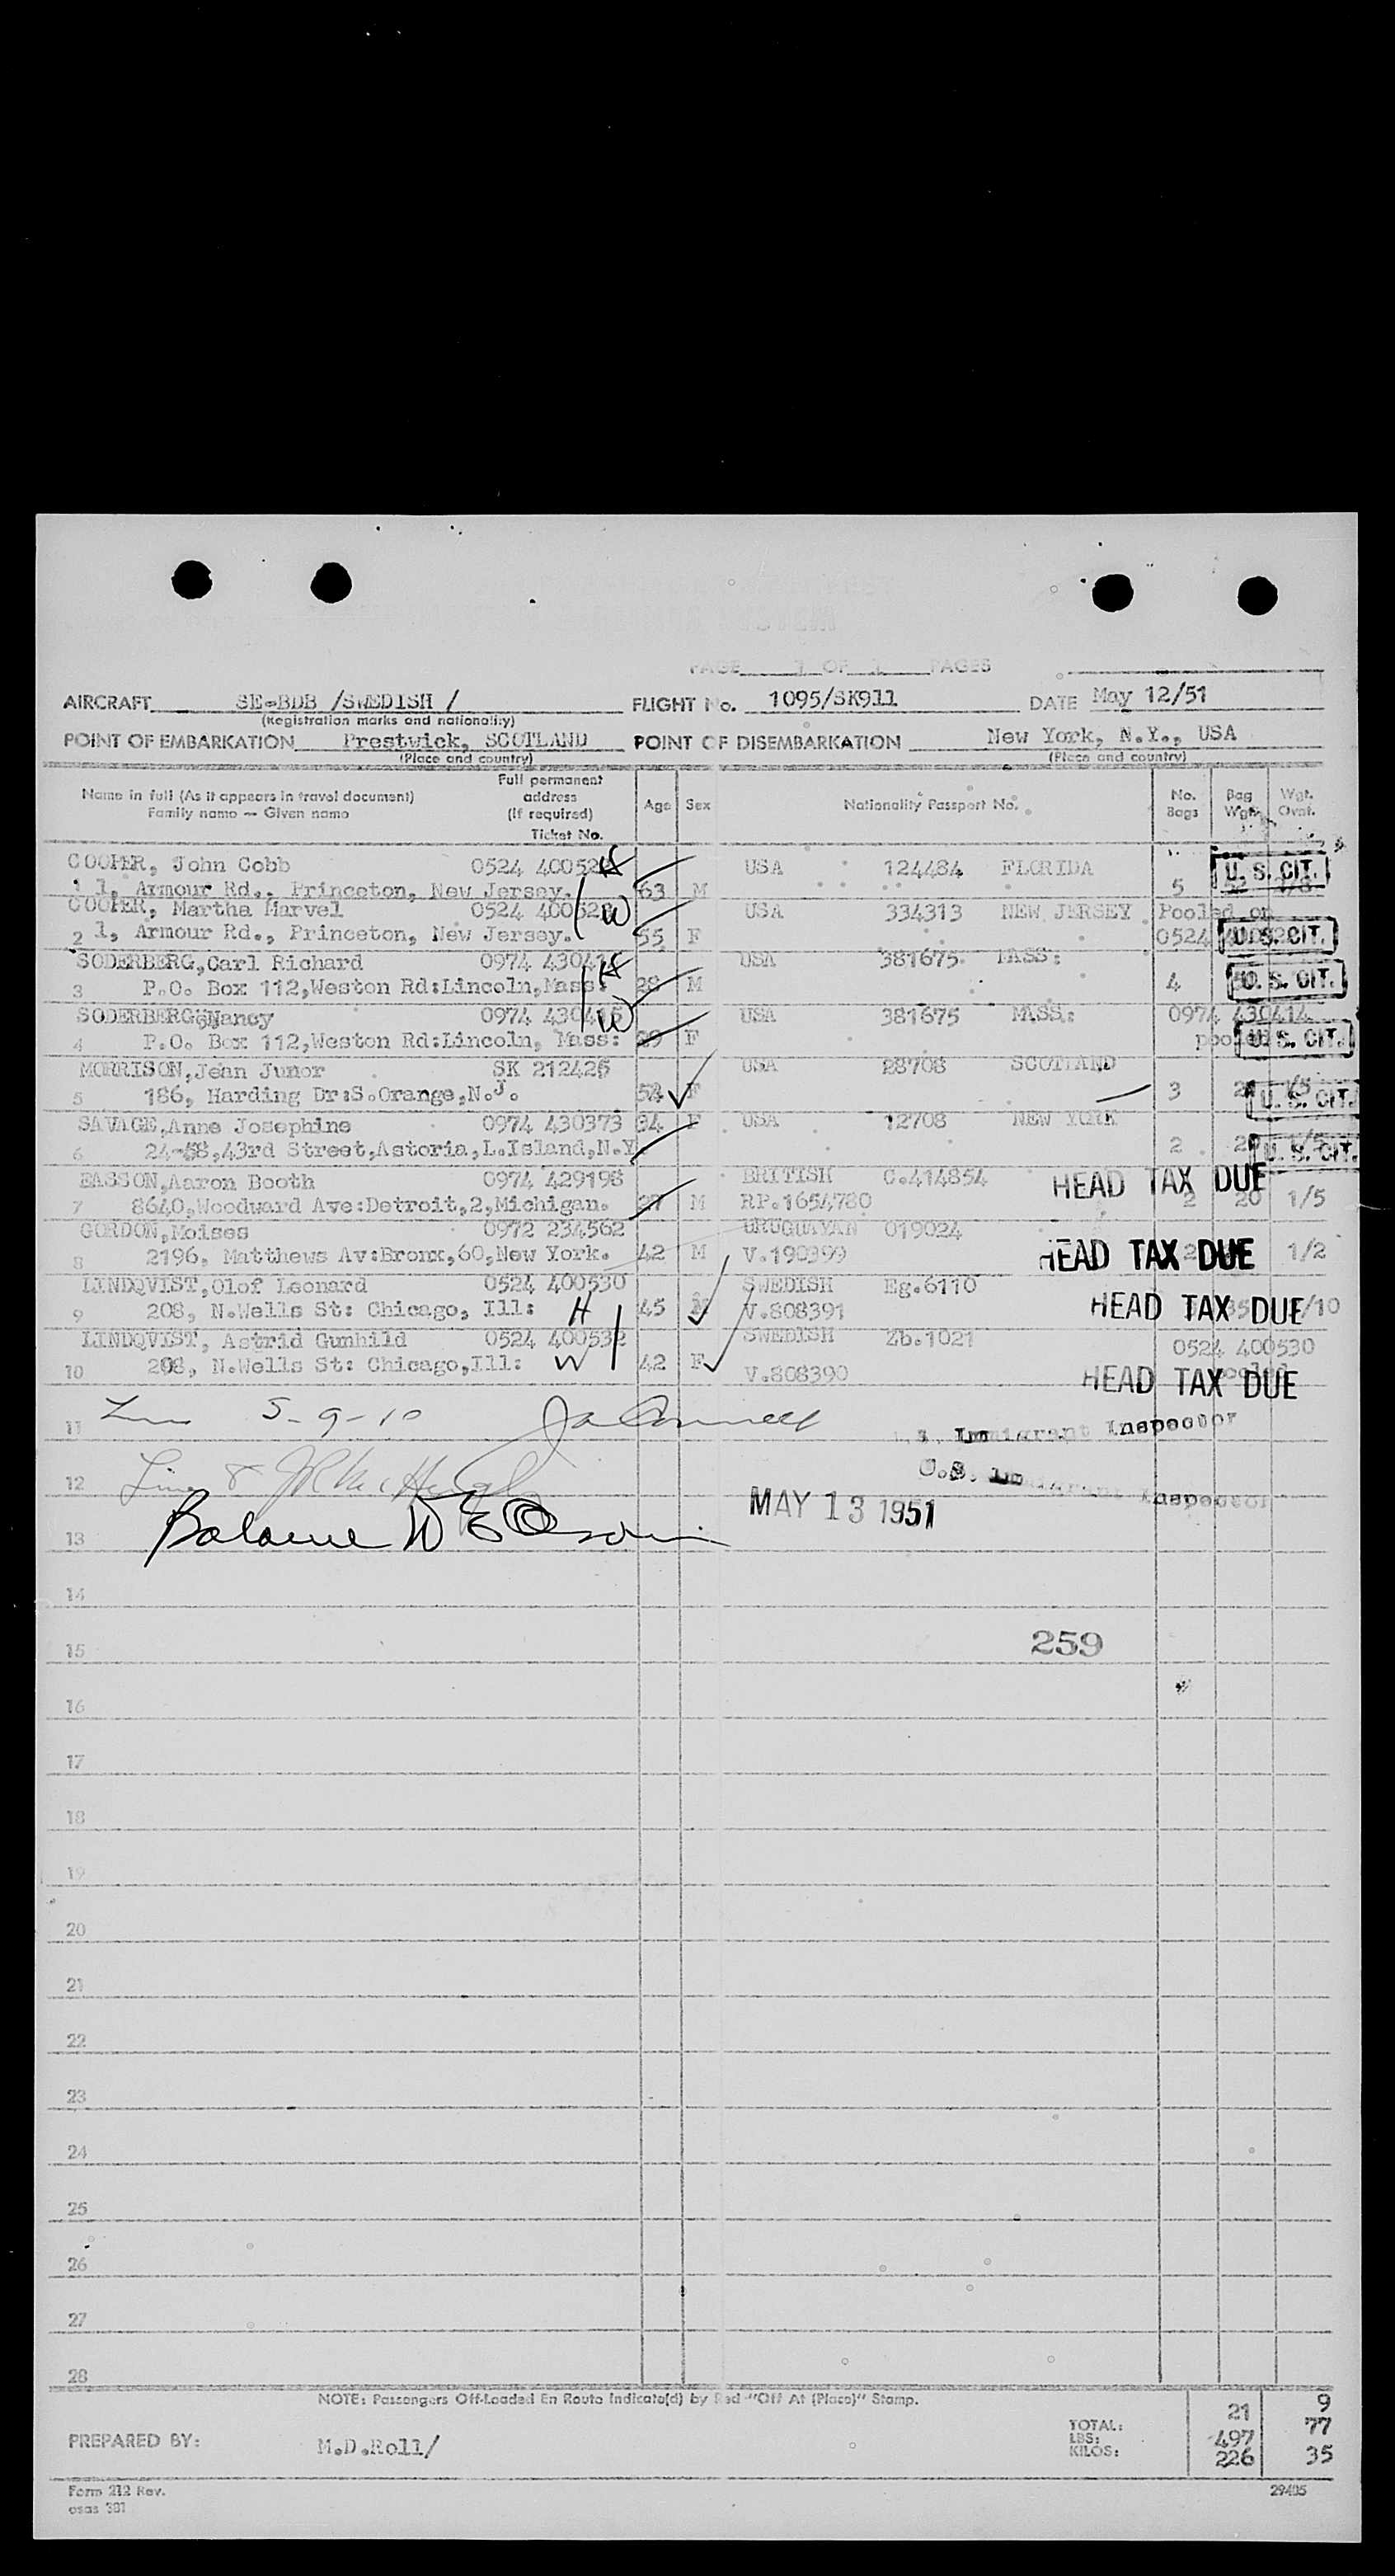 PAGE 1 OF 1 PAGES
AIRCRAFT SE-BDB /SWEDISH / FLIGHT No. 1095/SK911 DATE May 12/51
(Registration marks and nationality)
POINT OF EMBARKATION Prestwick, SCOTLAND POINT OF DISEMBARKATION New York, N.Y., USA
(Place and country) (Place and country)
Name in full (As it appears in travel document) Full permanent address (If required) Age Sex Nationality Passport No. No. Bags Bag Wgt. Wgt. Ovnt.
Family name — Given name Ticket No.
COOPER, John Cobb 0524 40052 H USA 124484 FLORIDA U. S. CIT.
1 1, Armour Rd., Princeton, New Jersey. 63 M 5
COOPER, Martha Marvel 0524 400528 W USA 334313 NEW JERSEY Pooled on
2 1, Armour Rd., Princeton, New Jersey. 55 F 0524 U. S. CIT.
SODERBERG,Carl Richard 0974 430414 H USA 381675 MASS: U. S. CIT.
3 P.O. Box 112,Weston Rd:Lincoln,Mass: 28 M 4
SODERBERG,Nancy 0974 430415 W USA 381675 MASS: 0974 430414
4 P.O. Box 112,Weston Rd:Lincoln, Mass: 29 F pooled U. S. CIT.
MORRISON,Jean Junor SK 212425 USA 28708 SCOTLAND
5 186, Harding Dr:S.Orange,N.J. 52 F 3 1/5 U. S. CIT.
SAVAGE,Anne Josephine 0974 430373 34 F USA 12708 NEW YORK
6 24-58,43rd Street,Astoria,L.Island,N.Y. 2 U. S. CIT.
EASSON,Aaron Booth 0974 429198 BRITISH C.414854 HEAD TAX DUE
7 8640,Woodward Ave:Detroit,2,Michigan. 27 M RP.1654780 2 20 1/5
GORDON,Moises 0972 234562 URUGUAYAN 019024
8 2196, Matthews Av:Bronx,60,New York. 42 M V.190399 HEAD TAX DUE 2 1/2
LINDQVIST,Olof Leonard 0524 400530 SWEDISH Eg.6110
9 208, N.Wells St: Chicago, Ill: H 45 M V.808391 HEAD TAX DUE /10
LINDQVIST, Astrid Gunhild 0524 400532 SWEDISH Zb.1021 0524 400530
10 208, N.Wells St: Chicago,Ill: W 42 F V.808390 HEAD TAX DUE
11 5-9-10 U.S. Immigrant Inspector
12 Line 8 U.S. Immigrant Inspector
MAY 13 1951
13
14
15 259
16
17
18
19
20
21
22
23
24
25
26
27
28
NOTE: Passengers Off-Loaded En Route Indicate(d) by Red "Off At (Place)" Stamp.
21 9
TOTAL:
PREPARED BY: M.D.Roll/ LBS: 497 77
KILOS: 226 35
Form 212 Rev. 29405
osas 301